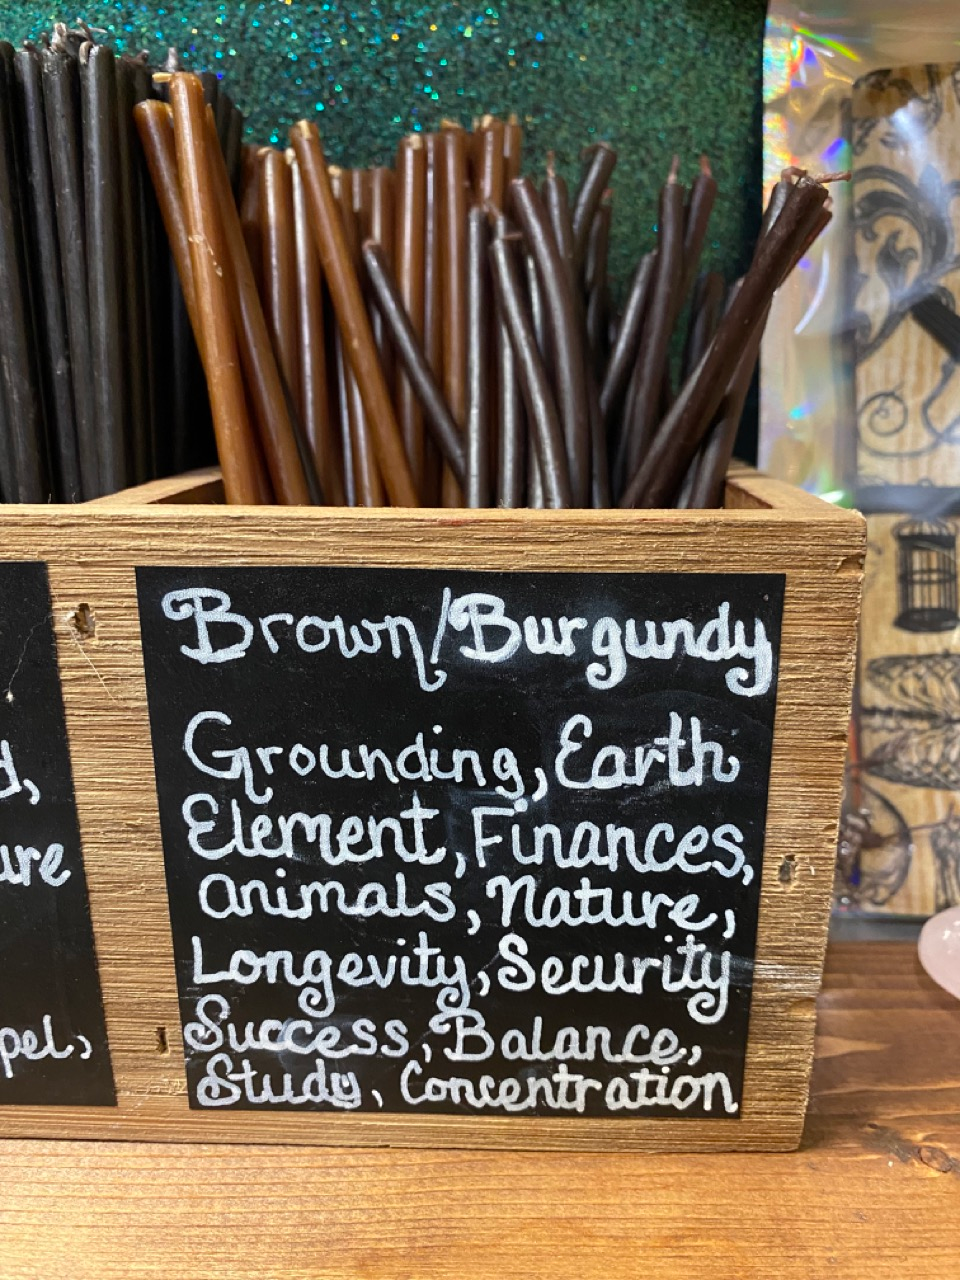 Brown/Burgundy
Grounding, Earth
Element, Finances,
Animals, Nature,
Longevity, Security
Success, Balance,
Study, Concentration
d,
ure
pel,